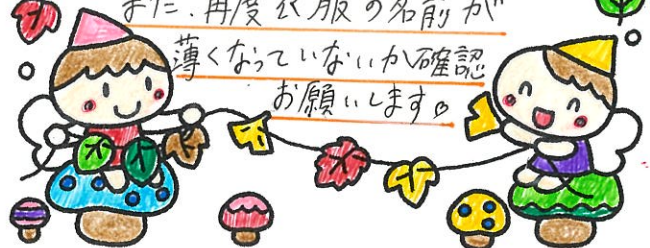 また、再度衣服の名前が
薄くなっていないか確認
お願いします。